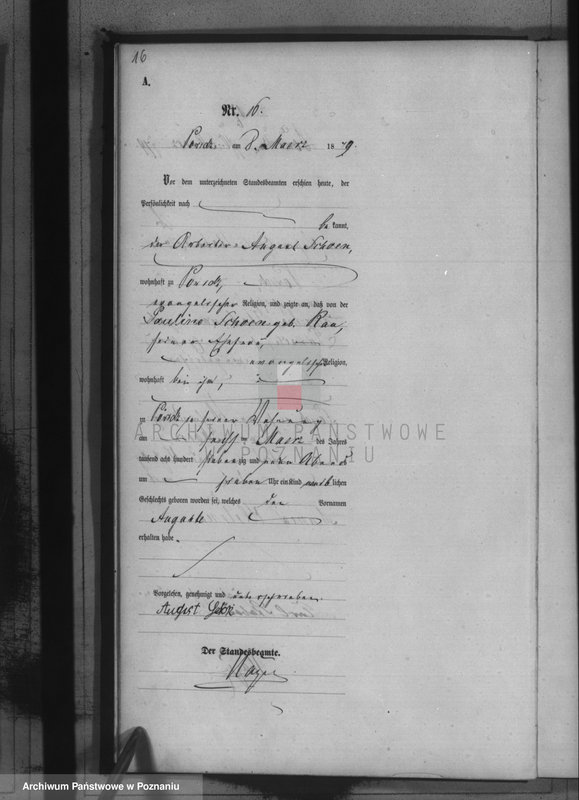 16
A.
Nr. 16.
am 8. Maerz 1879.
Vor dem unterzeichneten Standesbeamten erschien heute, der
Persönlichkeit nach
bekannt,
der Arbeiter August Schoen,
wohnhaft zu
evangelischer Religion, und zeigte an, daß von der
Pauline Schoen geb. Rau,
seiner Ehefrau,
evangelischer Religion,
wohnhaft bei ihm,
zu in seiner Wohnung
am sechsten Maerz des Jahres
tausend acht hundert siebenzig und neun Abends
um sieben Uhr ein Kind weiblichen
Geschlechts geboren worden sei, welches den Vornamen
Auguste
erhalten habe.
Vorgelesen, genehmigt und unterschrieben
August
Der Standesbeamte.
ARCHIWUM PAŃSTWOWE
W POZNANIU
Archiwum Państwowe w Poznaniu